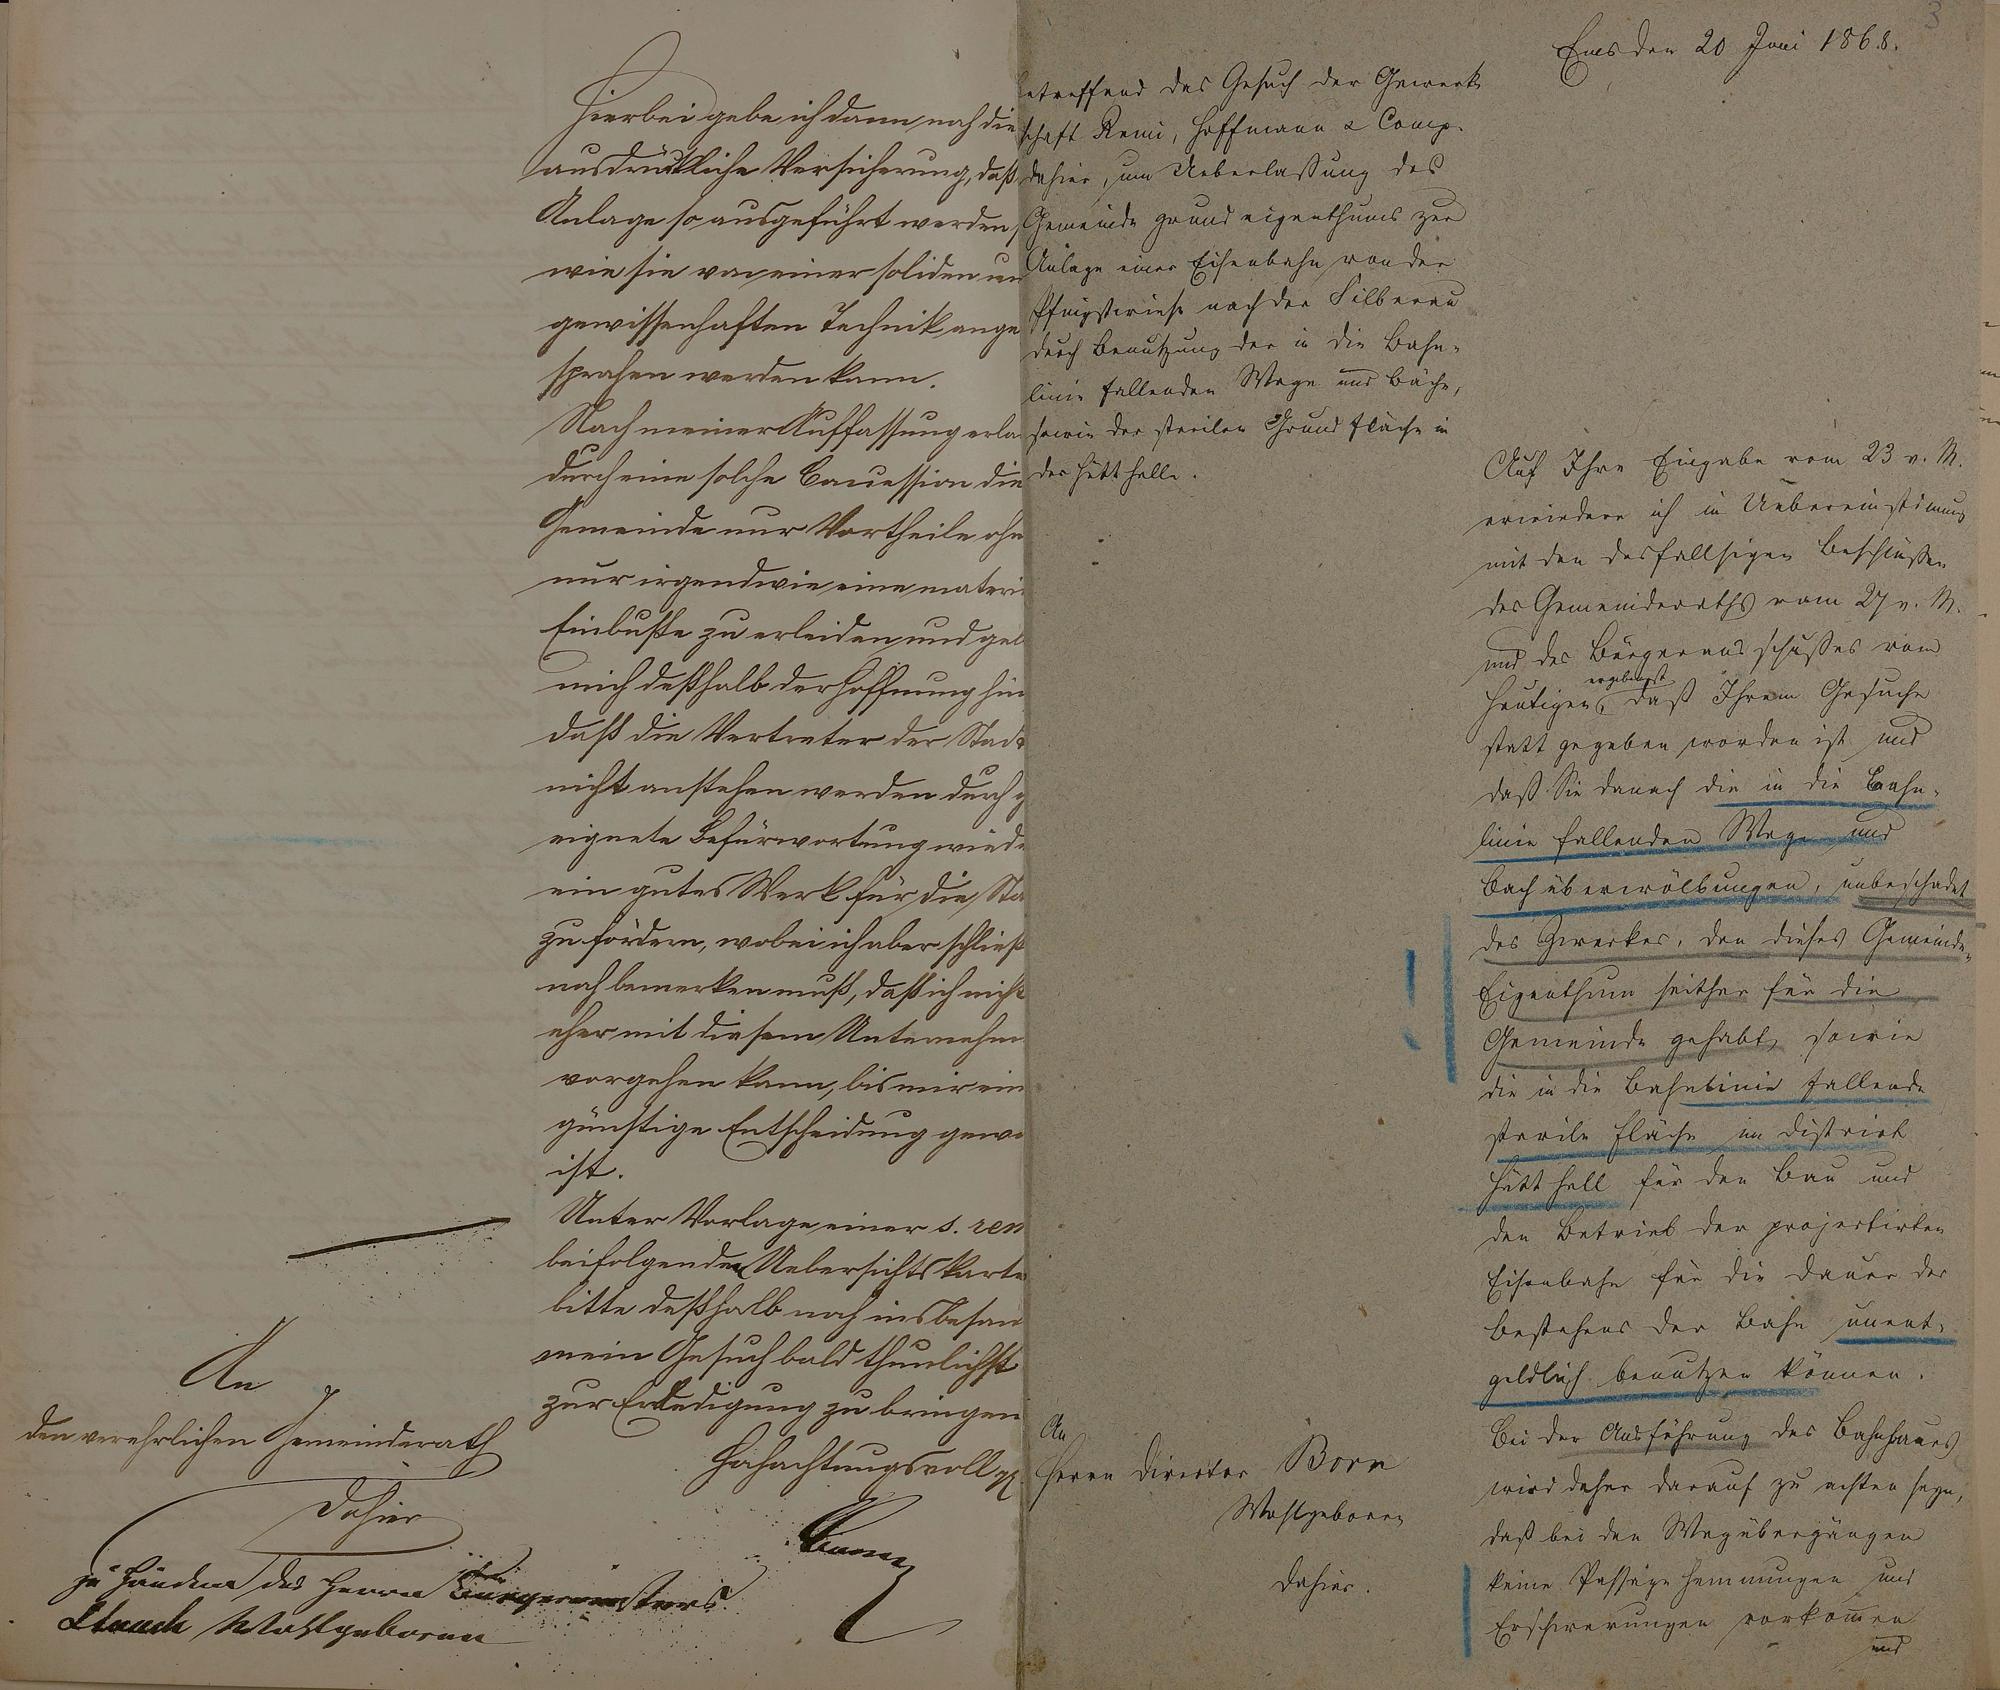 Hierbei gebe ich dann noch die
ausdrückliche Versicherung, daß
Anlage so ausgeführt werden,
wie sie von einer soliden un
gewissenhaften Technik ange
sprochen werden kann.
Nach meiner Auffassung erla
durch eine solche Concession die
Gemeinde nur Vortheile ohn
nur irgendwie eine materi
Einbuße zu erleiden und geb
mich deßhalb der Hoffnung hin
daß die Vertreter der Stadt
nicht anstehen werden durch g
eignete Befürwortung wiede
ein gutes Werk für die Sta
zu fördern, wobei ich aber schließ
noch bemerken muß, daß ich nicht
eher mit diesem Unternehm
vorgehen kann, bis mir ein
günstige Entscheidung gewo
ist.
Unter Vorlage einer s. rem
beifolgenden Uebersichtskarte
bitte deßhalb noch insbeson
mein Gesuch bald thunlichst
zur Erledigung zu bringen
Hochachtungsvoll
An
den verehrlichen Gemeinderath
dahier
zu Händen des Herrn Bürgermeisters
Wohlgeboren
3
Ems den 20 Juni 1868.
etreffend das Gesuch der Gewerk
schaft Remi, Hoffmann & Comp.
dahier, um Ueberlassung des
Gemeinde grund eigenthums zur
Anlage einer Eisenbahn von der
Pfingstwiese nach der Silberau
durch Benutzung der in die Bahn-
linie fallenden Wege und Bäche,
sowie der sterilen Grundfläche in
der Hütthelle.
Auf Ihre Eingabe vom 23 v. M.
erwiedere ich in Uebereinstimmung
mit den desfallsigen Beschlüßen
des Gemeinderaths vom 27 v. M.
und des Bürgerausschußes vom
Heutigen ergebenst, daß Ihrem Gesuche
statt gegeben worden ist und
daß Sie danach die in die Bahn-
linie fallenden Wege und
Bachüberwölbungen, unbeschadet
des Zweckes, den dieses Gemeinde-
Eigenthum seither für die
Gemeinde gehabt, sowie
die in die Bahnlinie fallende
sterile Fläche im District
Hütthell für den Bau und
den Betrieb der projectirten
Eisenbahn für die Dauer des
Bestehens der Bahn unent-
geldlich benutzen können.
Bei der Ausführung des Bahnbaues
wird daher darauf zu achten seyn,
daß bei den Wegübergängen
keine Passage Hemmungen und
Erschwerungen vorkomen
und
An
Herrn Director Born
Wohlgeboren
dahier.